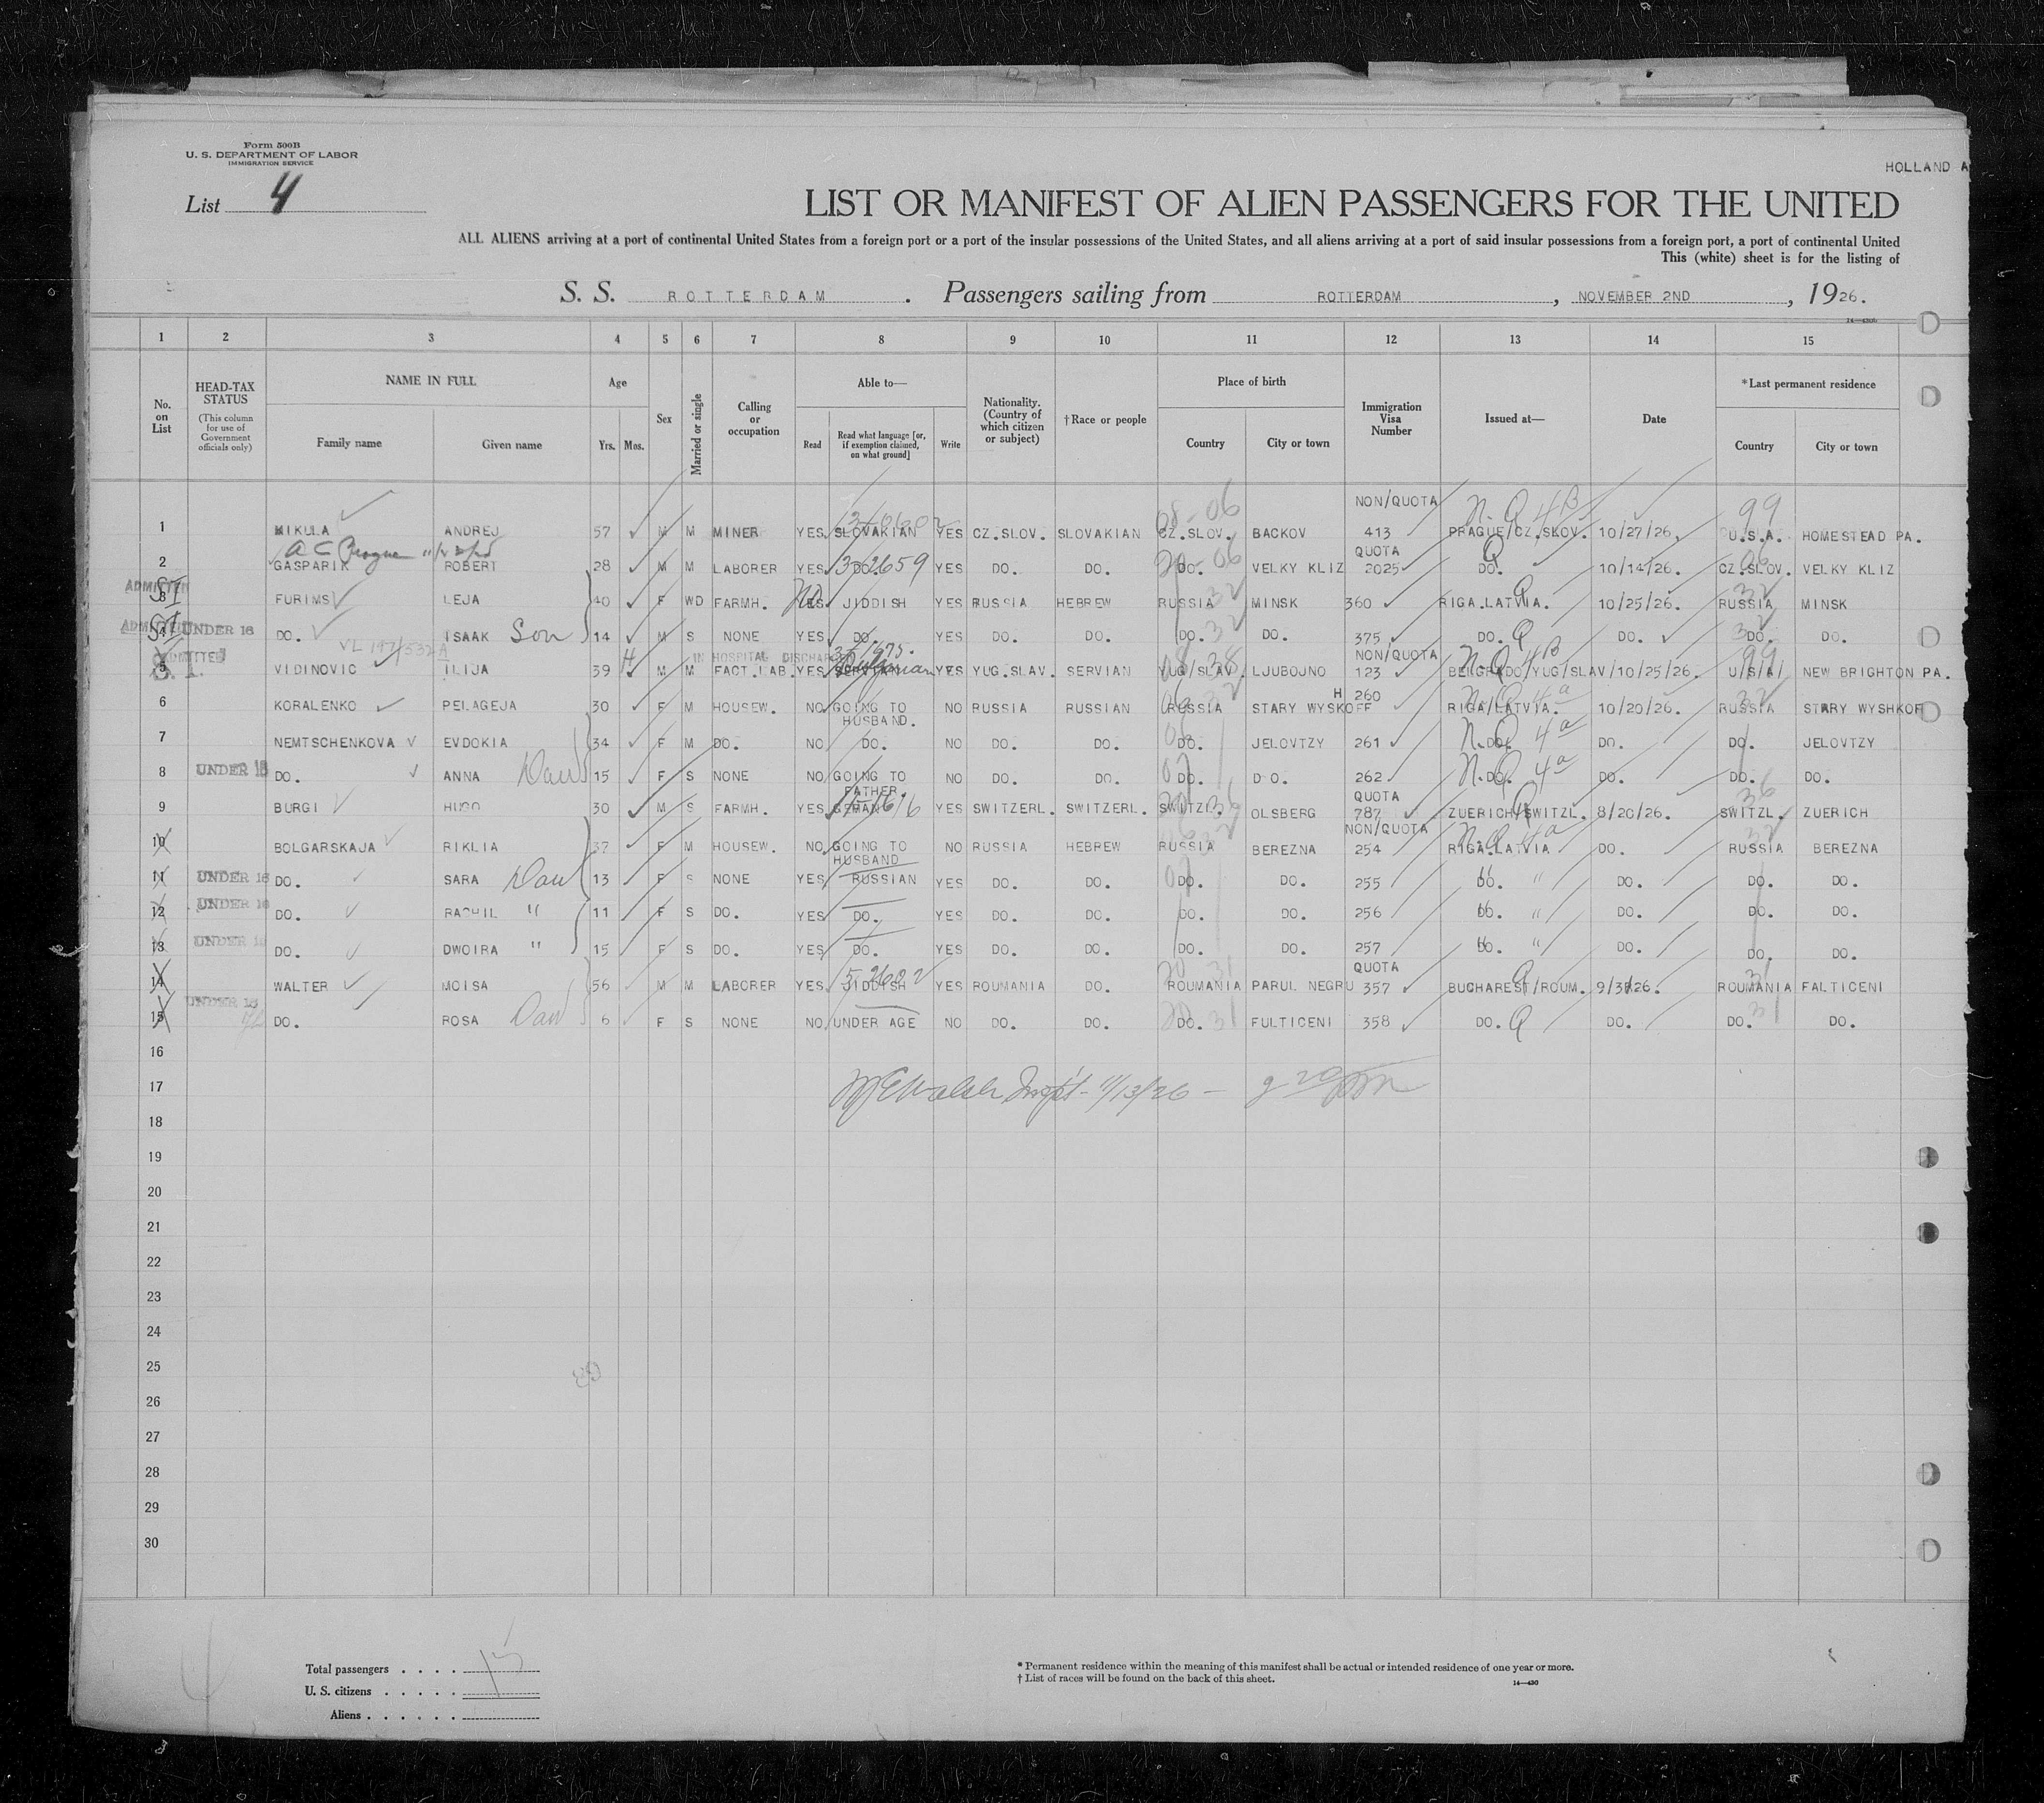 Form 500B
U. S. DEPARTMENT OF LABOR
IMMIGRATION SERVICE
HOLLAND A
List 4
LIST OR MANIFEST OF ALIEN PASSENGERS FOR THE UNITED
ALL ALIENS arriving at a port of continental United States from a foreign port or a port of the insular possessions of the United States, and all aliens arriving at a port of said insular possessions from a foreign port, a port of continental United
This (white) sheet is for the listing of
S. S. ROTTERDAM . Passengers sailing from ROTTERDAM , NOVEMBER 2ND , 1926.
1 2 3 4 5 6 7 8 9 10 11 12 13 14 15
No. on List
HEAD-TAX STATUS (This column for use of Government officials only)
NAME IN FULL Family name Given name
Age Yrs. Mos.
Sex
Married or single
Calling or occupation
Able to— Read Read what language [or, if exemption claimed, on what ground] Write
Nationality. (Country of which citizen or subject)
†Race or people
Place of birth Country City or town
Immigration Visa Number
Issued at—
Date
*Last permanent residence Country City or town
NON/QUOTA N.Q 4B 99
1 MIKULA ANDREJ 57 M M MINER YES SLOVAKIAN YES CZ.SLOV. SLOVAKIAN CZ.SLOV. BACKOV 413 PRAGUE/CZ.SLOV. 10/27/26. U.S.A. HOMESTEAD PA.
QUOTA Q
2 GASPARIK ROBERT 28 M M LABORER YES DO. YES DO. DO. DO. VELKY KLIZ 2025 DO. 10/14/26. CZ.SLOV. VELKY KLIZ
ADMITTED SI
3 FURIMS LEJA 40 F WD FARMH. YES No JIDDISH YES RUSSIA HEBREW RUSSIA MINSK 360 RIGA.LATVIA. Q 10/25/26. RUSSIA MINSK
ADMITTED SI UNDER 16
4 DO. ISAAK Son 14 M S NONE YES DO. YES DO. DO. DO. DO. 375 DO. Q DO. DO. DO.
ADMITTED S.I. IN HOSPITAL DISCHARGED NON/QUOTA N.Q 4B 99
5 VIDINOVIC ILIJA 39 M M FACT.LAB. YES SERVIAN Bulgarian YES YUG.SLAV. SERVIAN YUG/SLAV. LJUBOJNO 123 BELGRADO/YUG/SLAV/10/25/26. U/S/A/ NEW BRIGHTON PA.
6 KORALENKO PELAGEJA 30 F M HOUSEW. NO GOING TO HUSBAND. NO RUSSIA RUSSIAN RUSSIA STARY WYSKOFF H 260 RIGA/LATVIA. N.Q 4a 10/20/26. RUSSIA STARY WYSHKOF
7 NEMTSCHENKOVA EVDOKIA 34 F M DO. NO DO. NO DO. DO. DO. JELOVTZY 261 DO. N.Q 4a DO. DO. JELOVTZY
UNDER 16
8 DO. ANNA Dau 15 F S NONE NO GOING TO FATHER. NO DO. DO. DO. DO. 262 DO. N.Q 4a DO. DO. DO.
QUOTA 36
9 BURGI HUGO 30 M S FARMH. YES GEMAN YES SWITZERL. SWITZERL. SWITZL. OLSBERG 787 ZUERICH/SWITZL. 8/20/26. SWITZL. ZUERICH
NON/QUOTA N.Q 4a
10 BOLGARSKAJA RIKLIA 37 F M HOUSEW. NO GOING TO HUSBAND NO RUSSIA HEBREW RUSSIA BEREZNA 254 RIGA.LATVIA DO. RUSSIA BEREZNA
11 UNDER 16 DO. SARA Dau 13 F S NONE YES RUSSIAN YES DO. DO. DO. DO. 255 DO. " DO. DO. DO.
12 UNDER 16 DO. RACHIL " 11 F S DO. YES DO. YES DO. DO. DO. DO. 256 DO. " DO. DO. DO.
13 UNDER 16 DO. DWOIRA " 15 F S DO. YES DO. YES DO. DO. DO. DO. 257 DO. " DO. DO. DO.
QUOTA Q
14 WALTER MOISA 56 M M LABORER YES JIDDISH YES ROUMANIA DO. ROUMANIA PARUL NEGRU 357 BUCHAREST/ROUM. 9/3/26. ROUMANIA FALTICENI
UNDER 16
15 DO. ROSA Dau 6 F S NONE NO UNDER AGE NO DO. DO. DO. FULTICENI 358 DO. Q DO. DO. DO.
16
17
18
19
20
21
22
23
24
25
26
27
28
29
30
Total passengers . . . . 15
U. S. citizens . . . . .
Aliens . . . . . .
* Permanent residence within the meaning of this manifest shall be actual or intended residence of one year or more.
† List of races will be found on the back of this sheet.
14—430